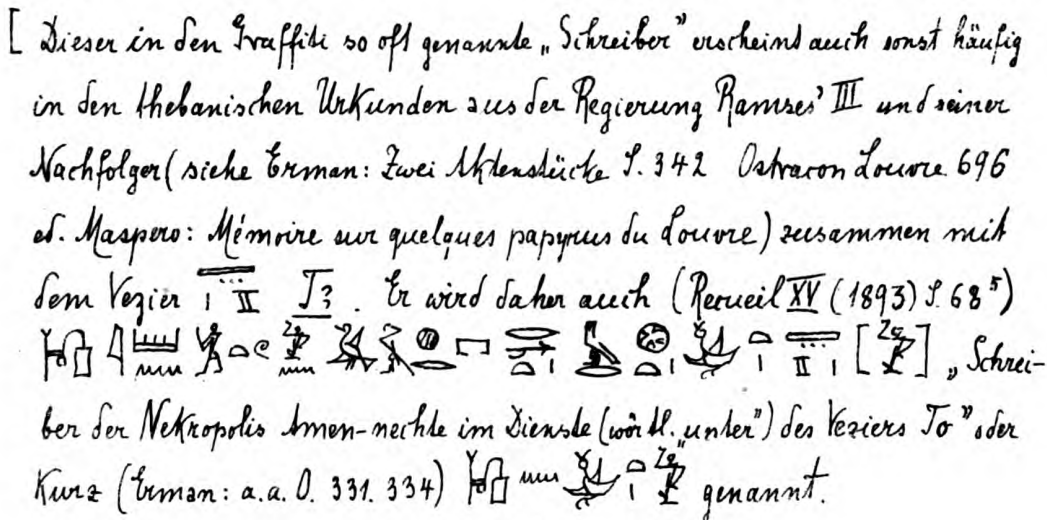 [ Dieser in den Graffiti so oft genannte „Schreiber” erscheint auch sonst häufig
in den thebanischen Urkunden aus der Regierung Ramses' III und seiner
Nachfolger ( siehe Erman: Zwei Aktenstücke S. 342 Ostracon Louvre 696
ed. Maspero: Mémoire sur quelques papyrus du Louvre) zusammen mit
dem Vezier T? . Er wird daher auch (Recueil XV (1893) S. 68⁵)
[ ] „Schrei-
ber der Nekropolis Amen-nechte im Dienste (wörtl. „unter”) des Veziers To” oder
Kurz (Erman: a.a.O. 331. 334) genannt.